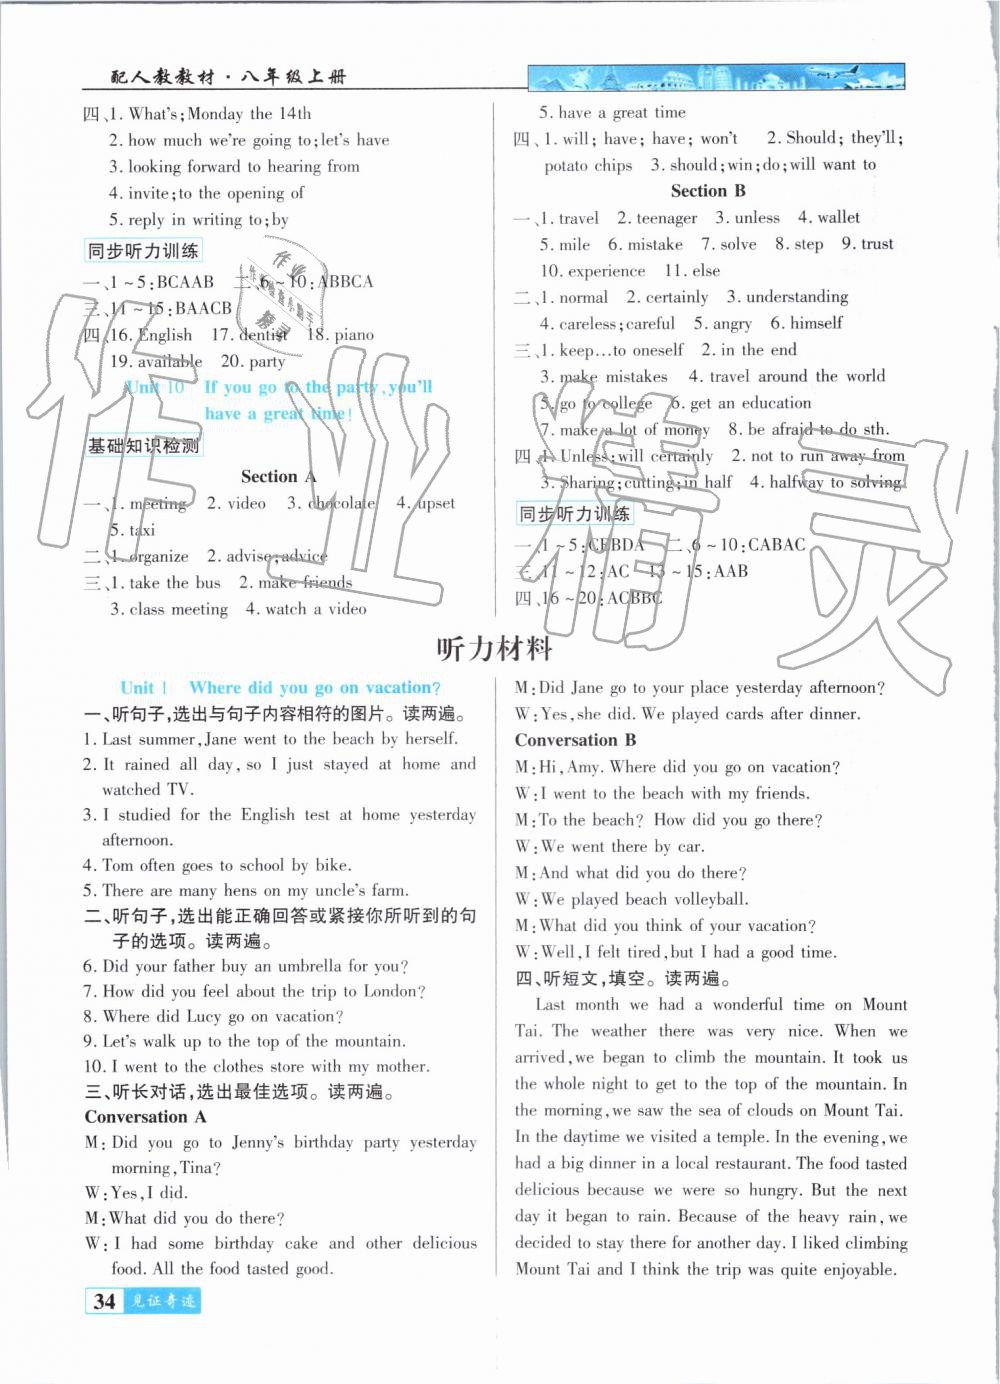 配人教教材·八年级上册
四、1. What's;Monday the 14th
2. how much we're going to;let's have
3. looking forward to hearing from
4. invite;to the opening of
5. reply in writing to;by
同步听力训练
一、1~5:BCAAB 二、6~10:ABBCA
三、11~15:BAACB
四、16. English 17. dentist 18. piano
19. available 20. party
Unit 10 If you go to the party,you'll
have a great time!
基础知识检测
Section A
一、1. meeting 2. video 3. chocolate 4. upset
5. taxi
二、1. organize 2. advise;advice
三、1. take the bus 2. make friends
3. class meeting 4. watch a video
5. have a great time
四、1. will; have; have; won't 2. Should; they'll;
potato chips 3. should;win;do;will want to
Section B
一、1. travel 2. teenager 3. unless 4. wallet
5. mile 6. mistake 7. solve 8. step 9. trust
10. experience 11. else
二、1. normal 2. certainly 3. understanding
4. careless;careful 5. angry 6. himself
三、1. keep…to oneself 2. in the end
3. make mistakes 4. travel around the world
5. go to college 6. get an education
7. make a lot of money 8. be afraid to do sth.
四、1. Unless;will certainly 2. not to run away from
3. Sharing;cutting;in half 4. halfway to solving
同步听力训练
一、1~5:CEBDA 二、6~10:CABAC
三、11~12:AC 13~15:AAB
四、16~20:ACBBC
听力材料
Unit 1 Where did you go on vacation?
一、听句子,选出与句子内容相符的图片。读两遍。
1. Last summer,Jane went to the beach by herself.
2. It rained all day, so I just stayed at home and
watched TV.
3. I studied for the English test at home yesterday
afternoon.
4. Tom often goes to school by bike.
5. There are many hens on my uncle's farm.
二、听句子,选出能正确回答或紧接你所听到的句
子的选项。读两遍。
6. Did your father buy an umbrella for you?
7. How did you feel about the trip to London?
8. Where did Lucy go on vacation?
9. Let's walk up to the top of the mountain.
10. I went to the clothes store with my mother.
三、听长对话,选出最佳选项。读两遍。
Conversation A
M: Did you go to Jenny's birthday party yesterday
morning,Tina?
W:Yes,I did.
M:What did you do there?
W: I had some birthday cake and other delicious
food. All the food tasted good.
M:Did Jane go to your place yesterday afternoon?
W:Yes,she did. We played cards after dinner.
Conversation B
M:Hi,Amy. Where did you go on vacation?
W:I went to the beach with my friends.
M:To the beach? How did you go there?
W:We went there by car.
M:And what did you do there?
W:We played beach volleyball.
M:What did you think of your vacation?
W:Well,I felt tired,but I had a good time.
四、听短文,填空。读两遍。
Last month we had a wonderful time on Mount
Tai. The weather there was very nice. When we
arrived,we began to climb the mountain. It took us
the whole night to get to the top of the mountain. In
the morning,we saw the sea of clouds on Mount Tai.
In the daytime we visited a temple. In the evening,we
had a big dinner in a local restaurant. The food tasted
delicious because we were so hungry. But the next
day it began to rain. Because of the heavy rain,we
decided to stay there for another day. I liked climbing
Mount Tai and I think the trip was quite enjoyable.
34 见证奇迹
作业精灵